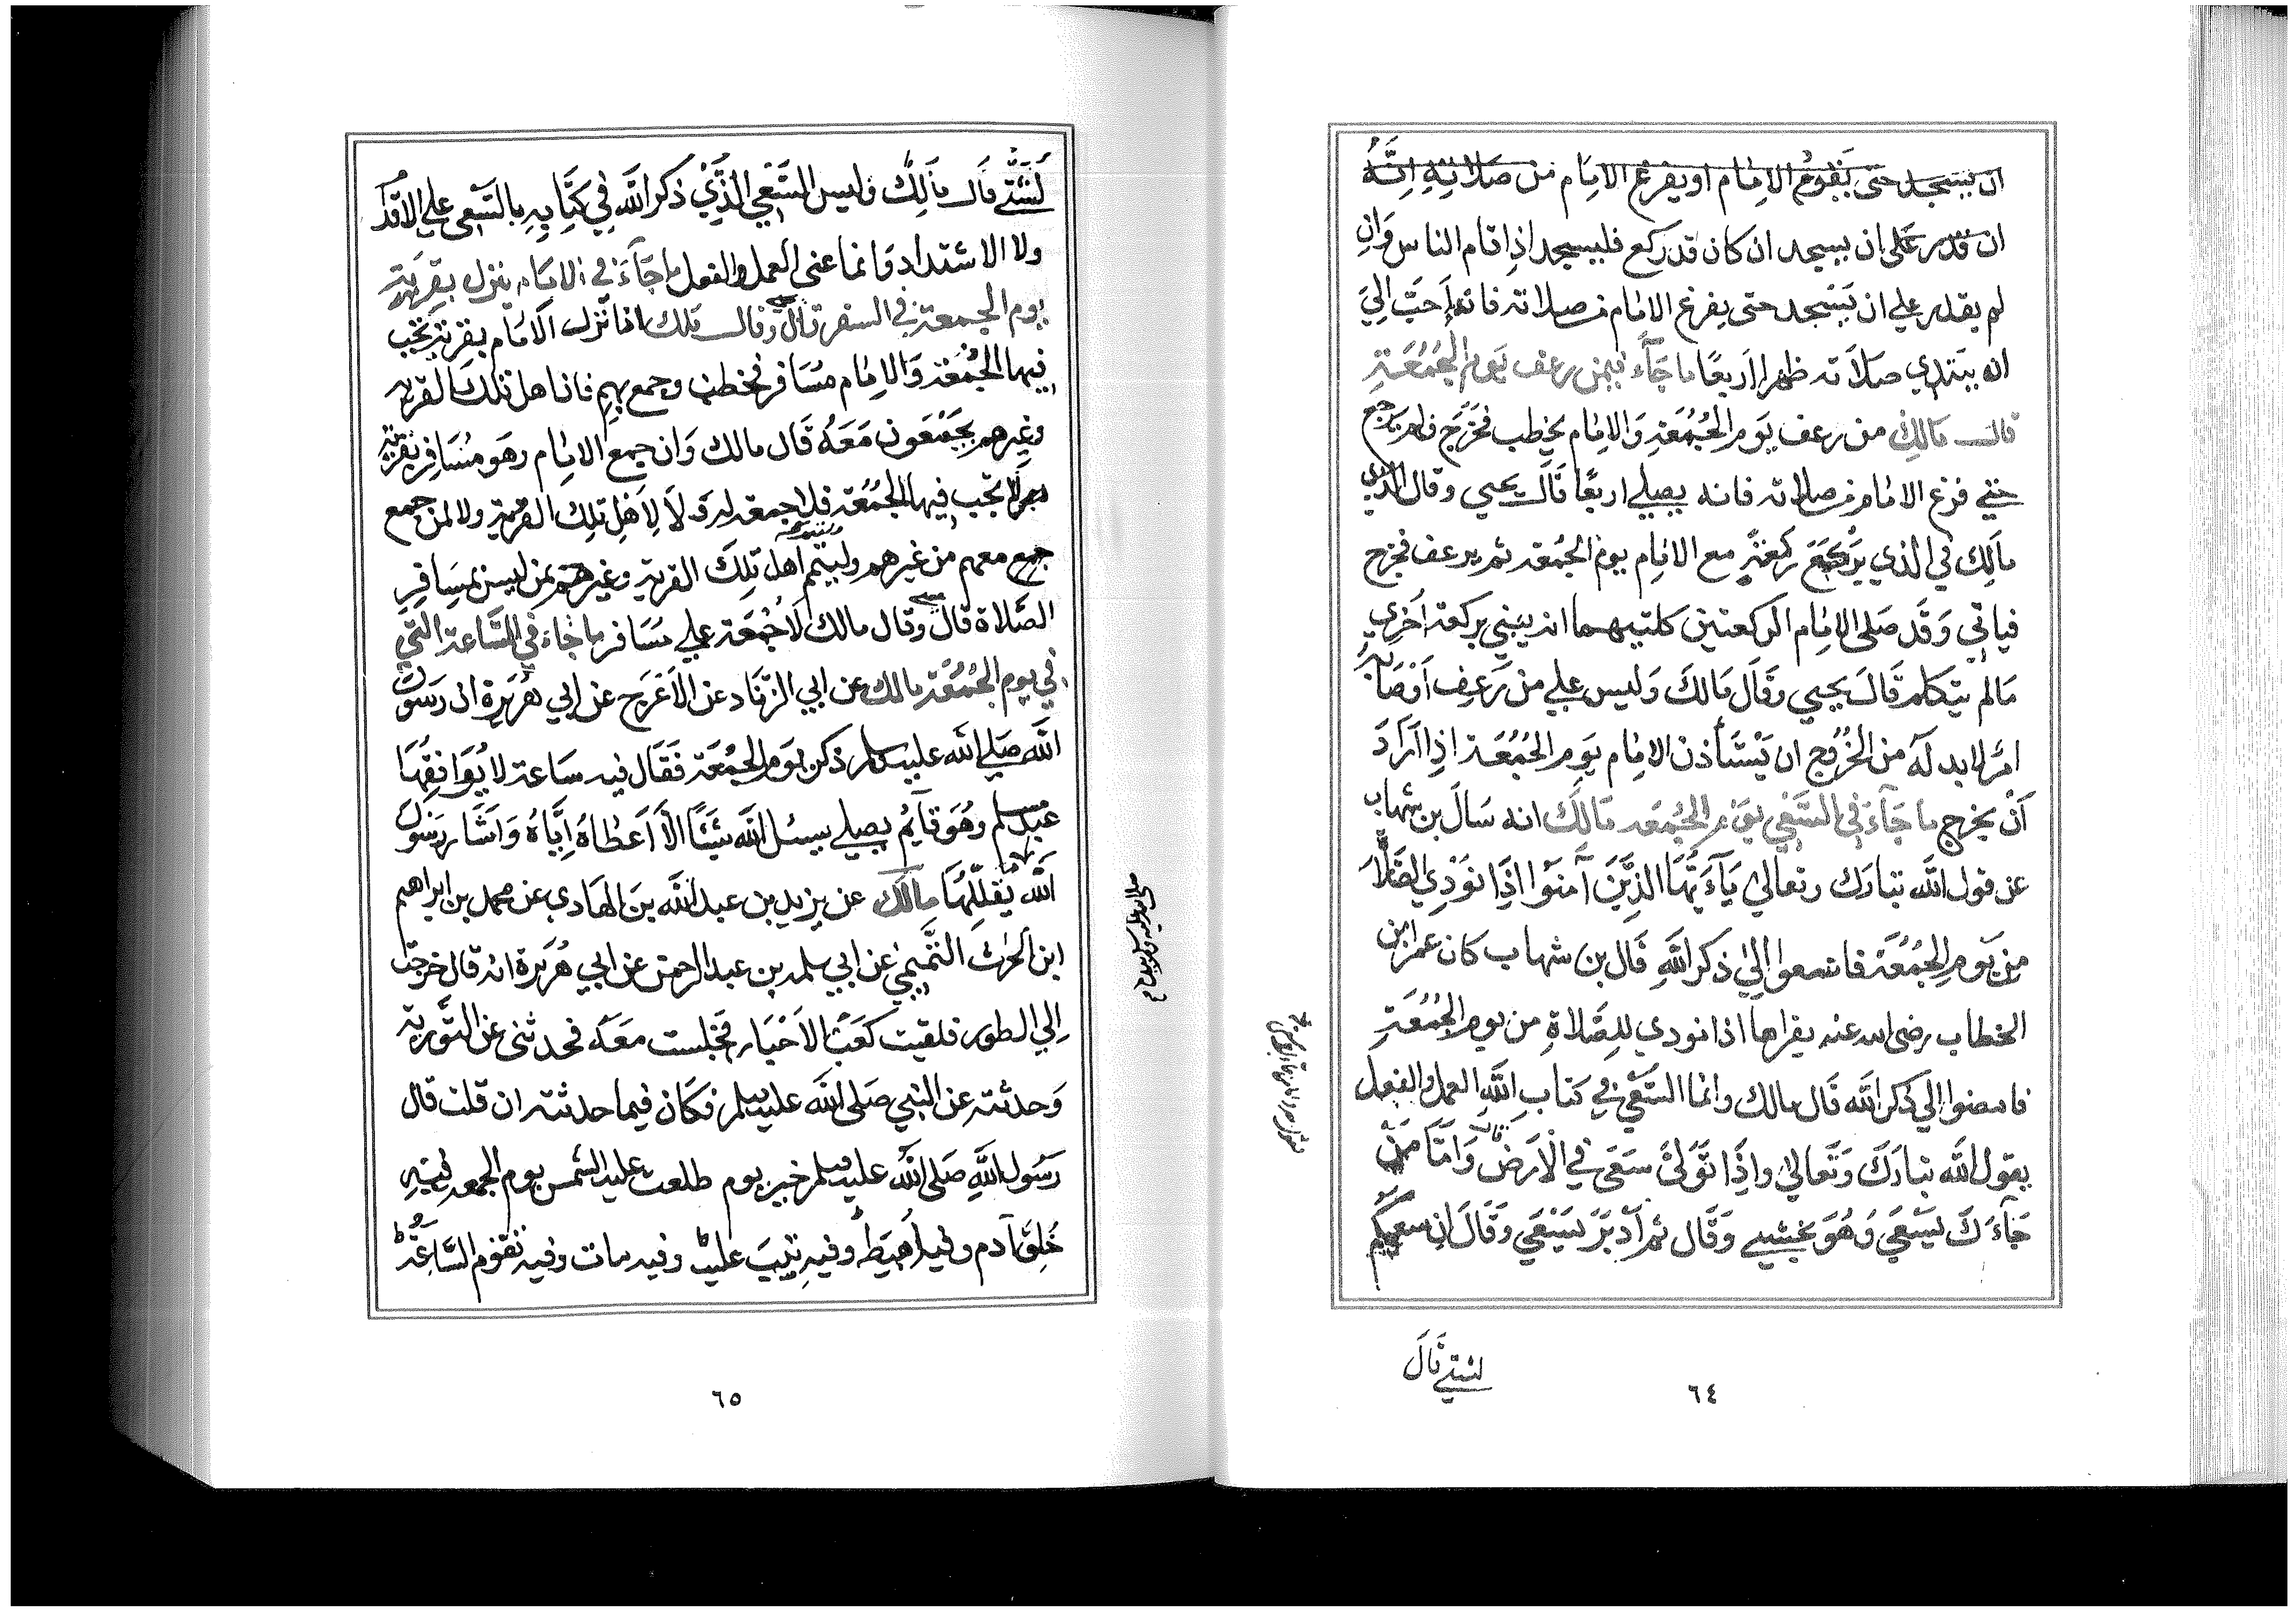 ان يسجد حتى يقوم الامام او يفرغ الامام من صلاته انه
ان قدر على ان يسجد ان كان قد ركع فليسجد اذا قام الناس وان
لم يقدر علي ان يسجد حتى يفرغ الامام من صلاته فانه احب الي
ان يبتدي صلاته ظهرا اربعا ما جآء فيمن رعف يوم الجمعة
قال مالك من رعف يوم الجمعة والامام يخطب فخرج فلم يرجع
حتي فرغ الامام من صلاته فانه يصلي اربعا قال يحيي وقال
مالك في الذي يركع ركعة مع الامام يوم الجمعة ثم يرعف فخرج
فياتي وقد صلى الامام الركعتين كلتيهما انه يبني بركعة اخرى
مالم يتكلم قال يحيي وقال مالك وليس علي من رعف او اصابه
امر لا بد له من الخروج ان يستأذن الامام يوم الجمعة اذا اراد
ان يخرج ما جآء في السعي يوم الجمعه مالك انه سال بن شهاب
عن قول الله تبارك وتعالى يآءيها الذين آمنوا اذا نودي للصلاة
من يوم الجمعة فاسعوا الي ذكر الله قال بن شهاب كان عمر ابن
الخطاب رضى الله عنه يقراها اذا نودي للصلاة من يوم الجمعة
فامضوا الي ذكر الله قال مالك وانما السعي في كتاب الله العمل والفعل
يقول الله تبارك وتعالي واذا تولى سعى في الارض وقال واما من
جآءك يسعي وهو يخشي وقال ثم ادبر يسعي وقال ان سعيكم
لشتي قال
٦٤
لشتي قال مالك وليس السعي الذي ذكر الله في كتابه بالسعي علي الاقدام
ولا الاشتداد وانما عنى العمل والفعل ما جآء في الامام ينزل بقرية
يوم الجمعة في السفر قال وقال مالك اذا نزل الامام بقرية تجب
فيها الجمعة والامام مسافر فخطب وجمع بهم فان اهل تلك القرية
وغيرهم يجمعون معه قال مالك وان جمع الامام وهو مسافر بقرية
لا تجب فيها الجمعة فلا جمعة له ولا لاهل تلك القرية ولا لمن جمع
جمع معهم من غيرهم وليتمم اهل تلك القرية وغيرهم ممن ليس بمسافر
الصلاة قال وقال مالك لا جمعة علي مسافر ما جاء في الساعة التي
في يوم الجمعة مالك عن ابي الزناد عن الاعرج عن ابي هريرة ان رسول
الله صلي الله عليه وسلم ذكر يوم الجمعة فقال فيه ساعة لا يوافقها
عبد مسلم وهو قآيم يصلي يسئل الله شيئا الا اعطاه اياه واشار رسول
الله يقللها مالك عن يزيد بن عبد الله بن الهادي عن محمد بن ابراهيم
ابن الحرث التميمي عن ابي سلمه بن عبد الرحمن عن ابي هريرة انه قال خرجت
الي الطور فلقيت كعب الاحبار فجلست معه فحدثني عن التورية
وحدثته عن النبي صلى الله عليه وسلم فكان فيما حدثته ان قلت قال
رسول الله صلى الله عليه وسلم خير يوم طلعت عليه الشمس يوم الجمعه فيه
خلق آدم وفيه اهبط وفيه تيب عليه وفيه مات وفيه تقوم الساعة
صلى الله عليه وسلم بيده
٦٥